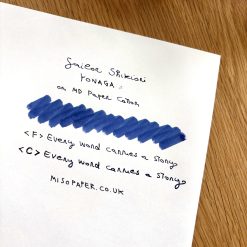 Sailor Shikiori
YONAGA =
on MD Paper Cotton
<F> Every word carries a story
<C> Every word carries a story
MISOPAPER.CO.UK